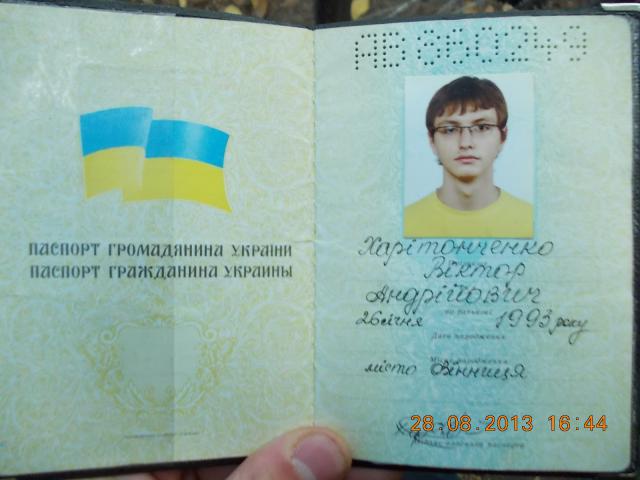 ПАСПОРТ ГРОМАДЯНИНА УКРАЇНИ
ПАСПОРТ ГРАЖДАНИНА УКРАИНЫ
АВ 360249
Харітонченко
Віктор
Андрійович
по батькові
26 січня 1993 року
Дата народження
Місце народження
місто Вінниця
28.08.2013 16:44